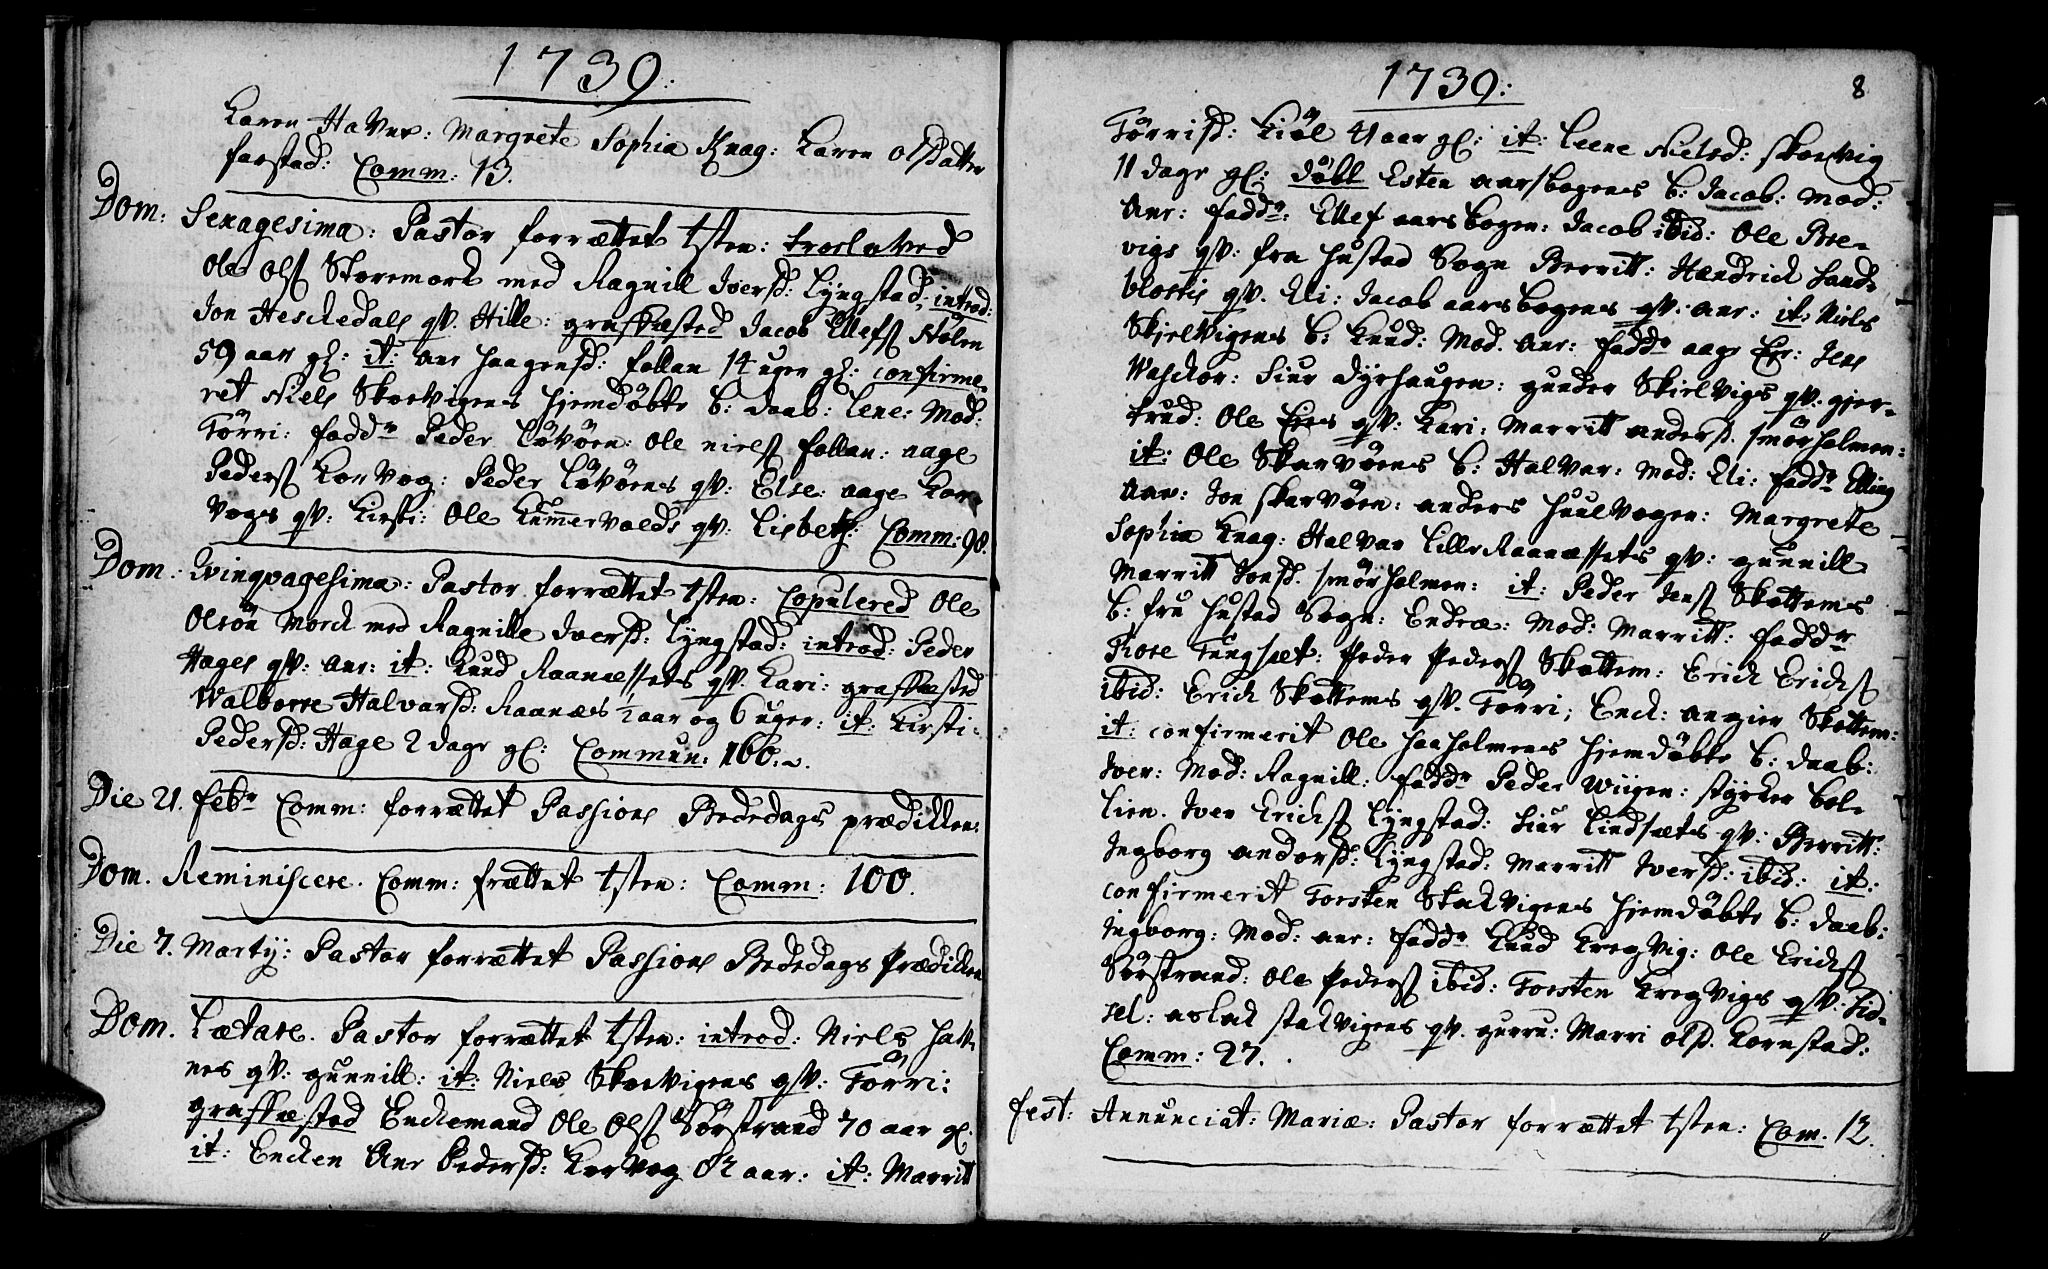 1739:
Karen Haven: Margrete Sophia Knag: Karen Olsdatter
farstad: Comm: 13.
Dom: Sexagesima: Pastor forrættet tsten: troslaved
Ole Ols Skaremork med Ragnill Iversd: Lÿngstad, introd:
Jon Heschedals qv. Hille: graffæsted Jacob Ellefs Holen
59 aar gl: it: Anr Haagensd: follan 14 uger gl: confirme-
ret Niels Skarvigens hjemdöbte b: daab: Lene: Mod:
Törri: faddr Peder Lövöen: Ole niels follan: aage
Peders Korvog: Peder Lövöens qv: Else: aage Kor
Vogs qv: Kirsti: Ole Kummervolds qv: Lisbeth: Comm: 98.
Dom: Qvinqvagesima: Pastor forrættet tsten: Copulered Ole
Olsön Morck med Ragnille Iversd: Lÿngstad: introd: Peder
Hages qv: Anr: it: Knud Raanæssets qv. Kari: graffæsted
Walborre Halvarsd: Raanæs ½ aar og 6 uger: it: Kirsti
Pedersd: Hage 2 dage gl: Commun: 160.
Die 21. febr Comm: forrættet Passions Bededags prædicken:
Dom. Reminiscere. Comm: frættet tsten: Comm: 100.
Die 7. Martÿ: Pastor forrættet Passions Bededags Prædicken
Dom. Lætare. Pastor forrættet tsten: introd: Niels Hals-
nes qv: gunnill: it: Niels Skarvigens qv: Törri:
graffæsted Enckemand Ole Ols Sörstrand 70 aar gl.
it: Encken Anr Pedersd: Korvog 82 aar: it: Marritt
1739: 8
Törrisd: Kiöl 41 aar gl: it: Leene Nielsd: Skarvig
11 dage gl: döbt Esten Aarsbogens b: Jacob: Mod:
Anr: faddr: Ellef aarsbogen: Jacob ibid: Ole Bre-
vigs qv: fra Hustad Sogn Berritt: Hendrick Sand-
blostis qv. Eli: Jacob aarsbogens qv: Anr: it: Niels
Skjelvigens b: Knud: Mod. Anr: faddr aage Eie: Jens
Waschor: Siur Dÿrhaugen: gunder Skielvigs qv: gjer-
trud: Ole Eies qv: Kari: Marritt Andersd. Smörholmen:
it: Ole Skarvöens b: Halvar: Mod: Eli: faddr Elling
Aan: Jon Skarvöen: Anders Huulvogen: Margrete
Sophia Knag: Halvar Lille Raanæssets qv: gunnill
Marritt Jonsd. Smörholmen: it: Peder Jens Skottems
b: fru Hustad Sogn: Endre: Mod: Marritt: faddr
Tore Tungsæt: Peder Peders Skottem: Erick Ericks
ibid: Erick Skottems qv. Törri; Enck: Angier Skottem:
it: confirmerit Ole Haaholmens hjemdöbte b: daab:
Iver: Mod: Ragnill: faddr Peder Wiigen: Stÿrker Bol-
lien. Iver Ericks Lÿngstad: Siur Lindsæts qv: Berritt:
Ingborg Andersd: Lÿngstad: Marritt Iversd: ibid: it:
confirmerit Torsten Stakvigens hjemdöbte b: daab:
Ingborg: Mod: Anr: faddr Knud Kregvig: Ole Ericks
Sörstrand: Ole Peders ibid: Torsten Kregvigs qv: Sid-
sel: Aslak Stakvigens qv. gurru: Marri Olsd. Kornstad:
Comm: 27.
fest: Annunciat: Mariæ: Pastor forrættet tsten: Com. 12.